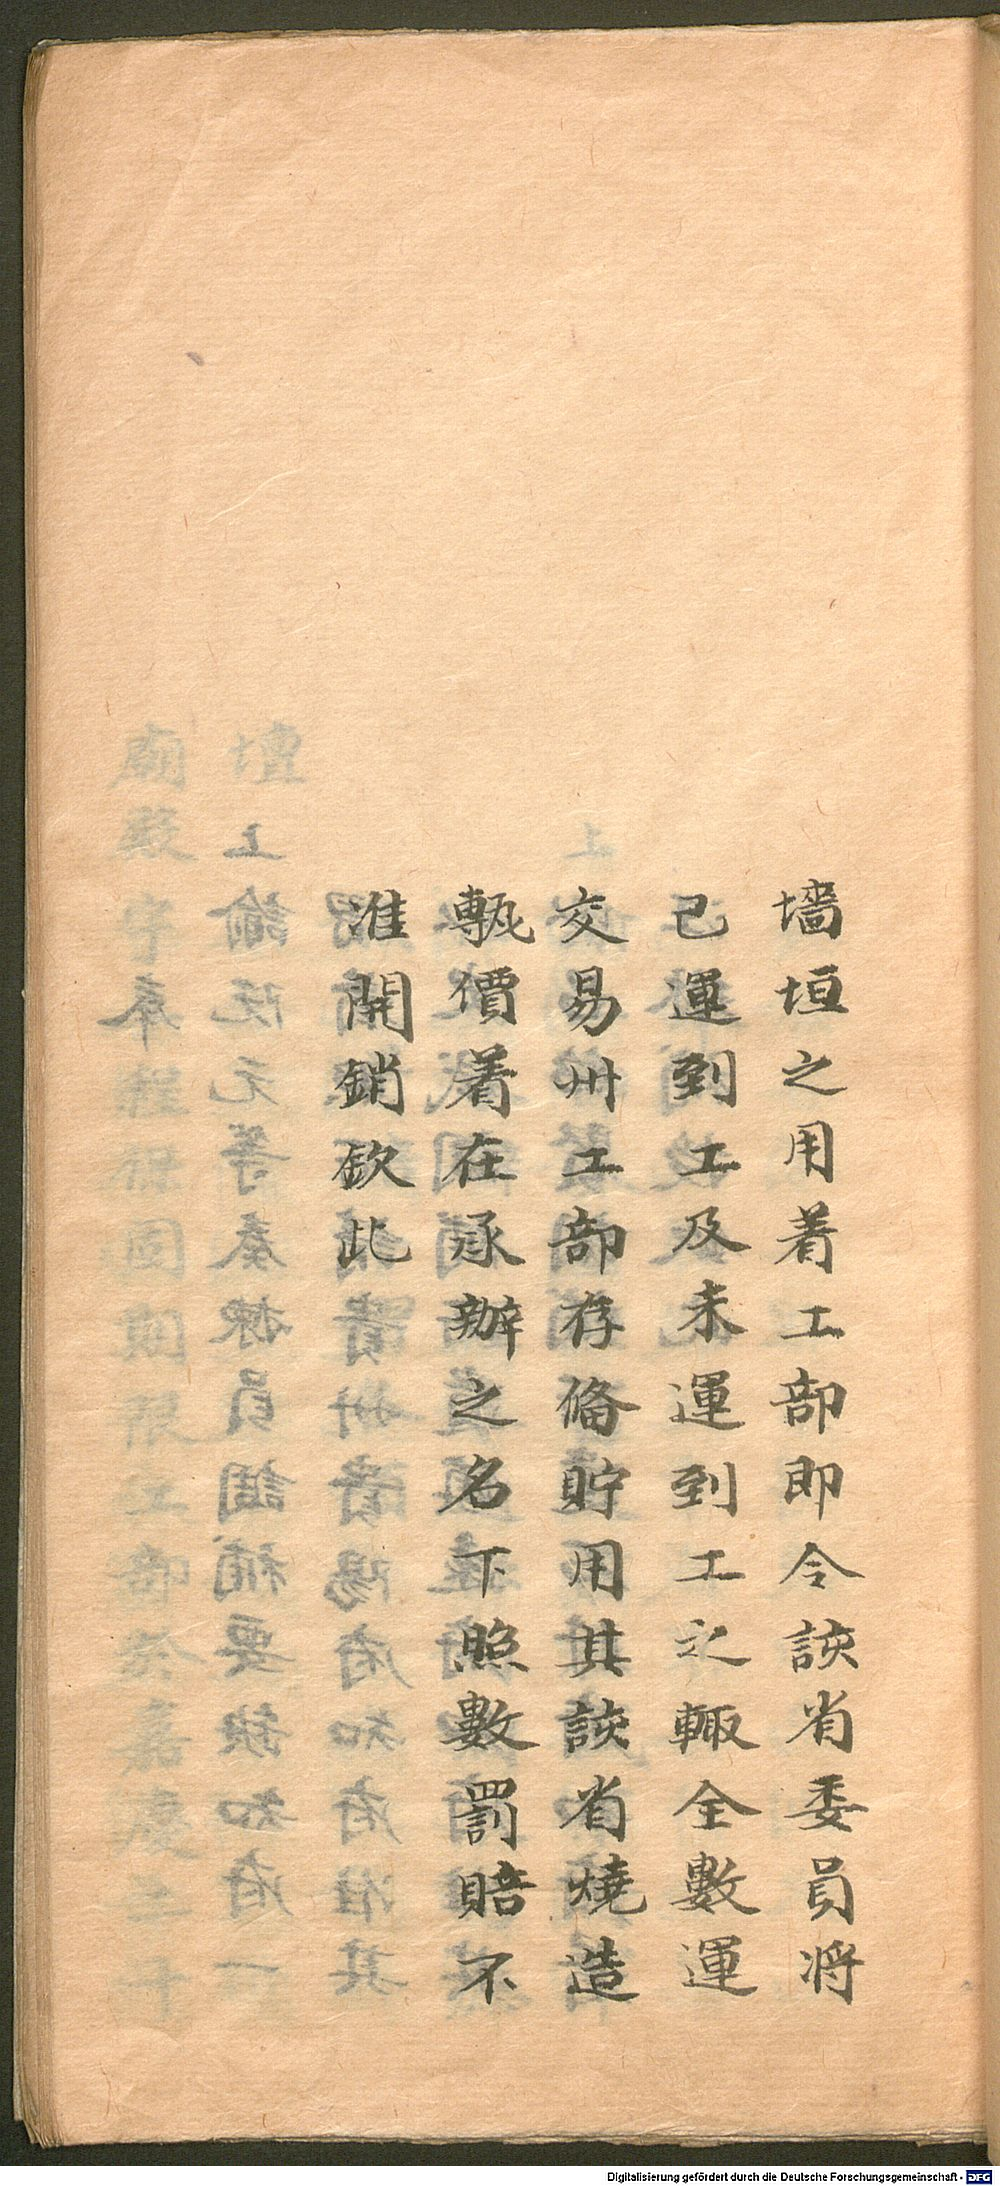 墻垣之用着工部即令該省委員将
已運到工及未運到工之轍全數運
交易州工部存俻貯用其該省燒造
甎價着在承辦之名下照數罰賠不
准開銷欽此
Digitalisierung gefördert durch die Deutsche Forschungsgemeinschaft - DFG